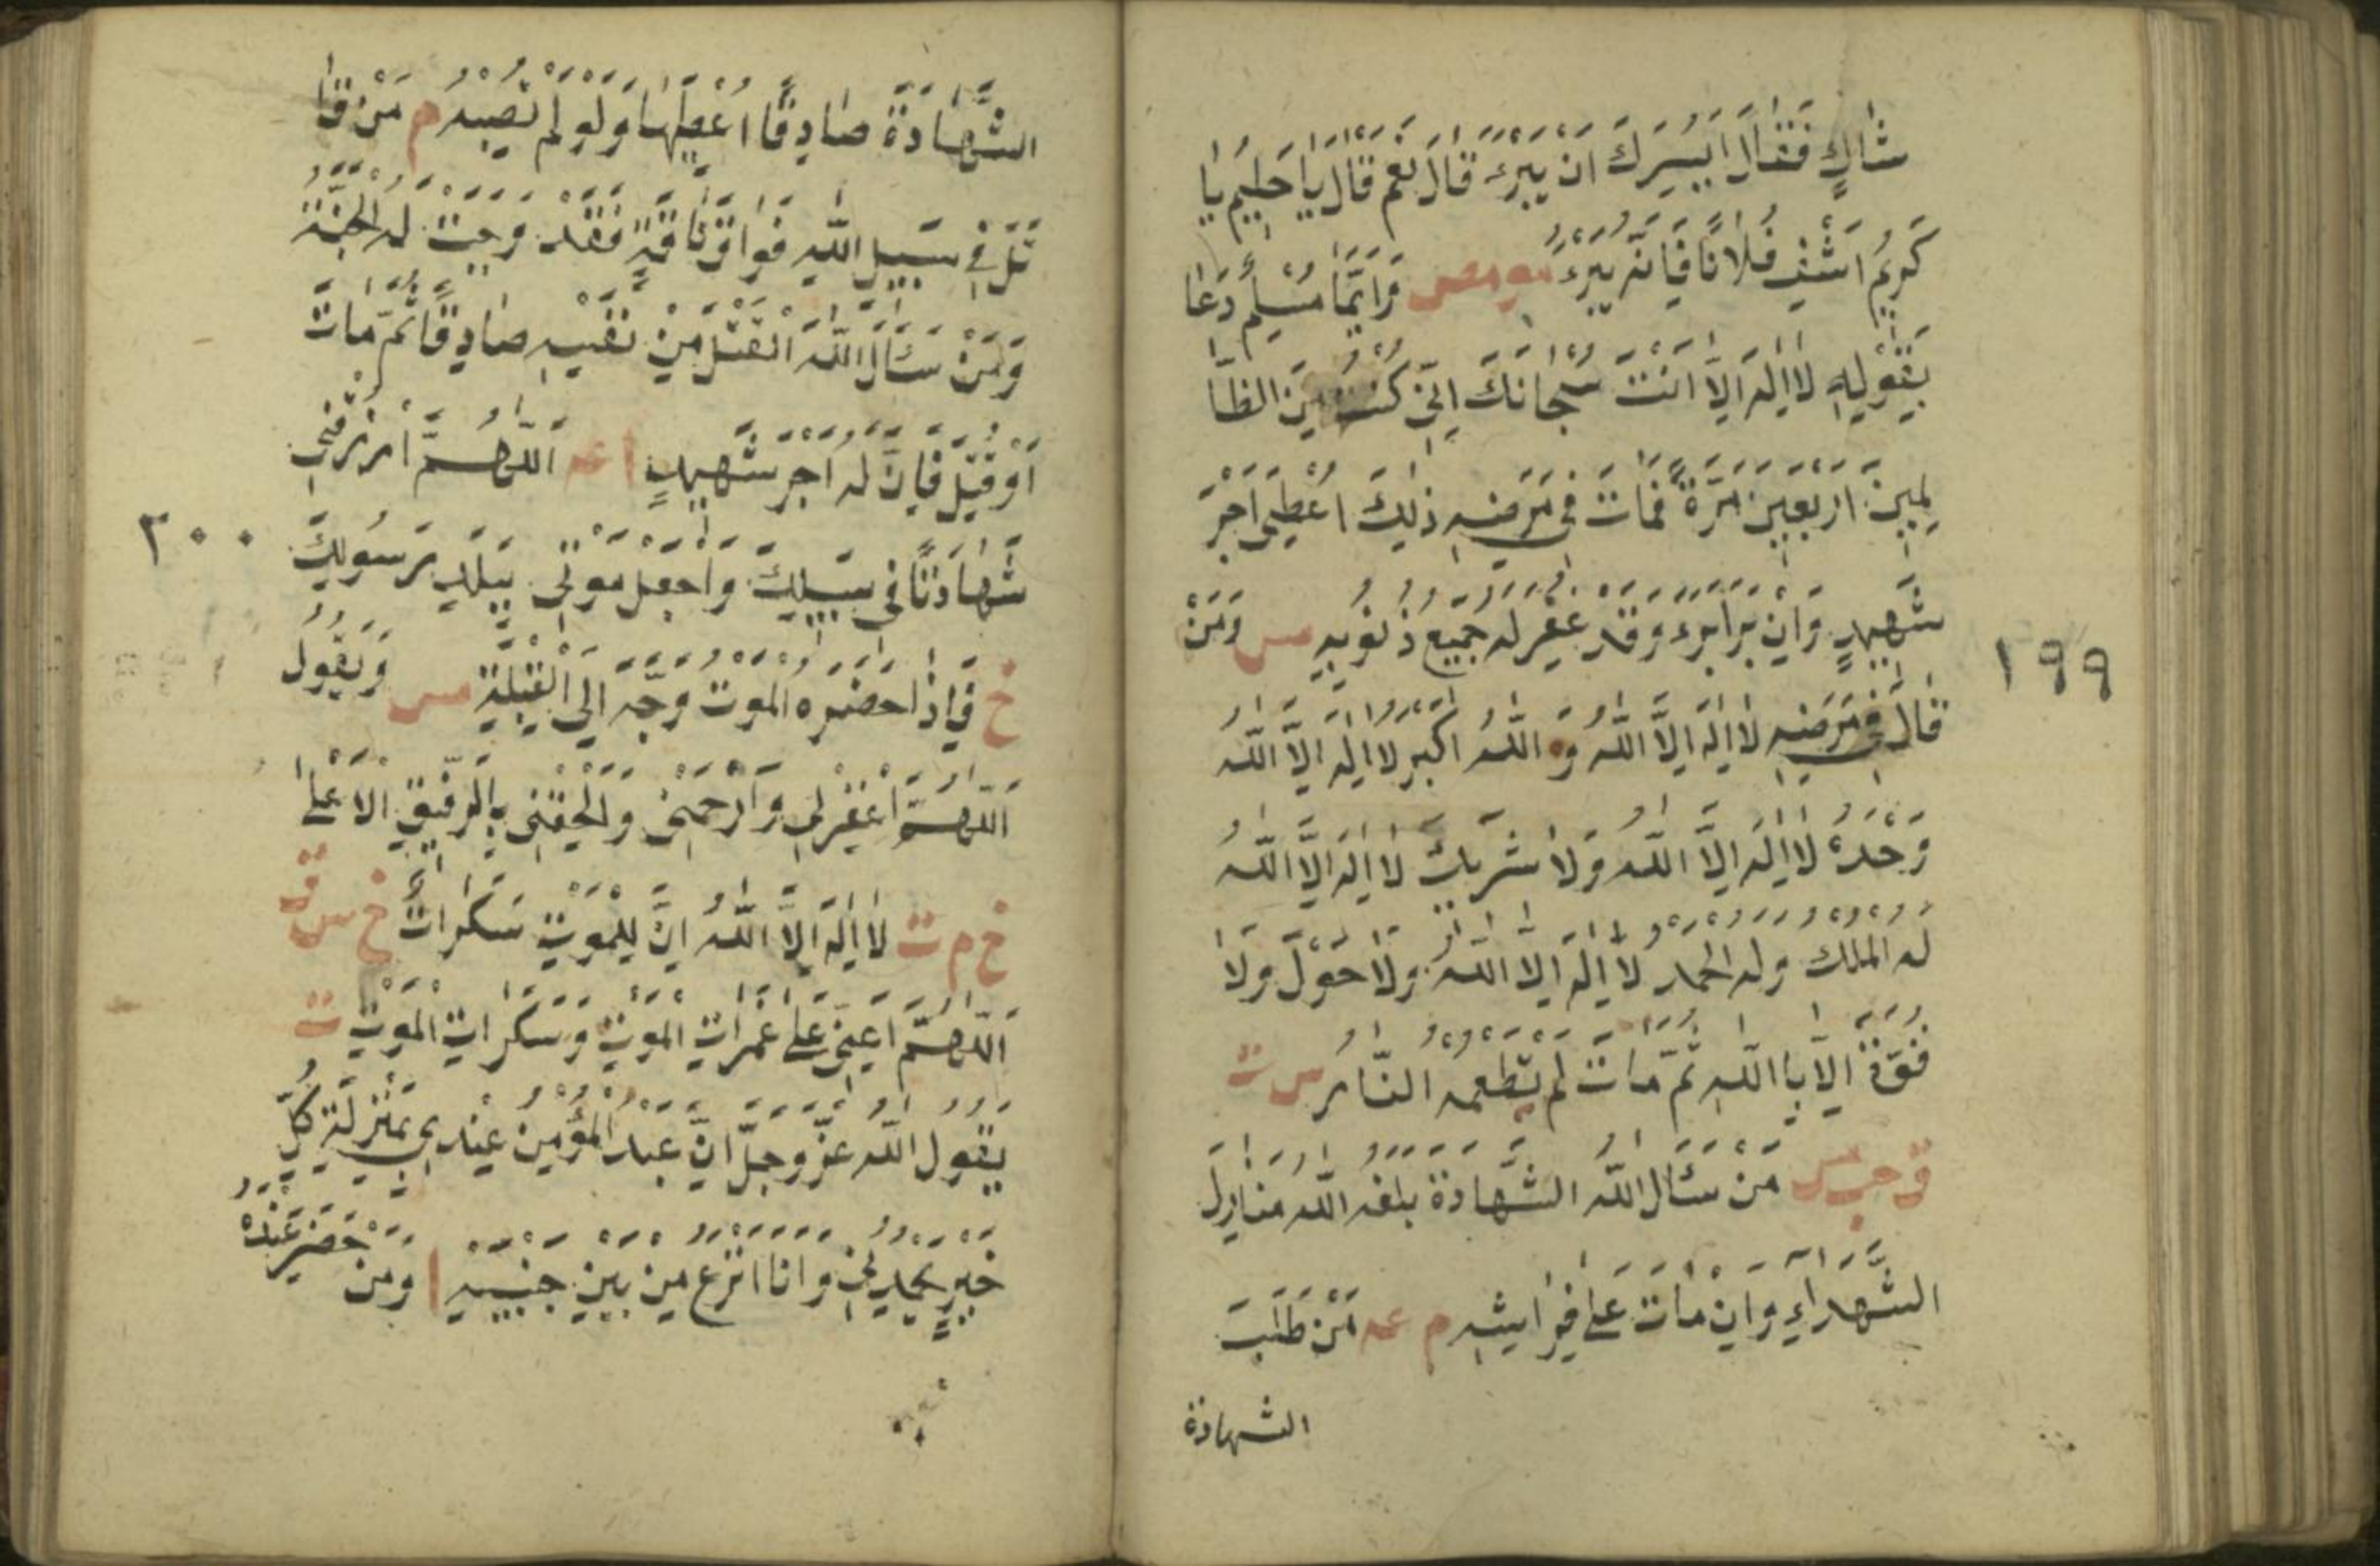 شَاكٍ فَقَالَ اَيَسُرُّكَ اَنْ يَبْرَءَ قَالَ نَعَمْ قَالَ يَا حَلِيمُ يَا
كَرِيمُ اشْفِ فُلَانًا فَاِنَّهُ يَبْرَءُ مو مص وَاَيُّمَا مُسْلِمٍ دَعَا
بِقَوْلِهِ لَا اِلٰهَ اِلَّا اَنْتَ سُبْحَانَكَ اِنِّي كُنْتُ مِنَ الظَّا
لِمِينَ اَرْبَعِينَ مَرَّةً فَمَاتَ فِي مَرَضِهِ ذٰلِكَ اُعْطِيَ اَجْرَ
شَهِيدٍ وَاِنْ بَرَأَ بَرَءَ وَقَدْ غُفِرَ لَهُ جَمِيعُ ذُنُوبِهِ مس وَمَنْ
قَالَ فِي مَرَضِهِ لَا اِلٰهَ اِلَّا اللّٰهُ وَاللّٰهُ اَكْبَرُ لَا اِلٰهَ اِلَّا اللّٰهُ
وَحْدَهُ لَا اِلٰهَ اِلَّا اللّٰهُ وَلَا شَرِيكَ لَا اِلٰهَ اِلَّا اللّٰهُ
لَهُ الْمُلْكُ وَلَهُ الْحَمْدُ لَا اِلٰهَ اِلَّا اللّٰهُ وَلَا حَوْلَ وَلَا
قُوَّةَ اِلَّا بِاللّٰهِ ثُمَّ مَاتَ لَمْ تَطْعَمْهُ النَّارُ س ت
ق حب مس مَنْ سَئَالَ اللّٰهَ الشَّهَادَةَ بَلَغَهُ اللّٰهُ مَنَازِلَ
الشُّهَدَاۤءِ وَاِنْ مَاتَ عَلٰى فِرَاشِهِ م عه مَنْ طَلَبَ
الشهادة
١٩٩
الشَّهَادَةَ صَادِقًا اُعْطِيَهَا وَلَوْ لَمْ تُصِبْهُ م مَنْ قَا
تَلَ فِي سَبِيلِ اللّٰهِ فَوَاقَ نَاقَةٍ فَقَدْ وَجَبَتْ لَهُ الْجَنَّةُ
وَمَنْ سَئَالَ اللّٰهَ الْقَتْلَ مِنْ نَفْسِهِ صَادِقًا ثُمَّ مَاتَ
اَوْ قُتِلَ فَاِنَّ لَهُ اَجْرَ شَهِيدٍ ا عه اَللّٰهُمَّ ارْزُقْنِي
شَهَادَتًا فِي سَبِيلِكَ وَاجْعَلْ مَوْتِي بِبَلَدِ رَسُولِكَ
٢٠٠
خ فَاِذَا حَضَرَهُ الْمَوْتُ وُجِّهَ اِلَى الْقِبْلَةِ مس وَيَقُولُ
اَللّٰهُمَّ اغْفِرْ لِي وَارْحَمْنِي وَاَلْحِقْنِي بِالرَّفِيقِ الْاَعْلٰى
خ م ت لَا اِلٰهَ اِلَّا اللّٰهُ اِنَّ لِلْمَوْتِ سَكَرَاتٌ خ س ق
اَللّٰهُمَّ اَعِنِّي عَلٰى غَمَرَاتِ الْمَوْتِ وَسَكَرَاتِ الْمَوْتِ ت
يَقُولُ اللّٰهُ عَزَّ وَجَلَّ اِنَّ عَبْدَ الْمُؤْمِنُ عِنْدِي بِمَنْزِلَةِ كُلِّ
خَيْرٍ يَحْمَدُنِي وَاَنَا اَنْزِعُ مِنْ بَيْنِ جَنْبَيْهِ ا وَمَنْ حَضَرَ عِنْدَهُ